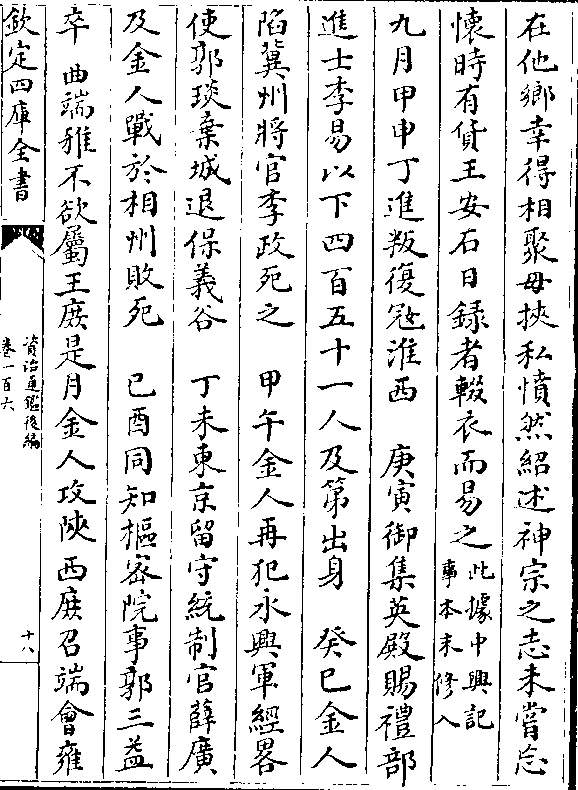 在他鄉幸得相聚毋挾私憤然紹述神宗之志未嘗忘
懷時有貨王安石日録者輟衣而易之此據中興記事本末修入
九月甲申丁進叛復冦淮西　庚寅御集英殿賜禮部
進士李易以下四百五十一人及第出身　癸巳金人
陷冀州將官李政死之　甲午金人再犯永興軍經畧
使郭琰棄城退保義谷　丁未東京留守統制官薛廣
及金人戰於相州敗死　己酉同知樞密院事郭三益
卒　曲端雅不欲屬王庶是月金人攻陜西庶召端會雍
欽定四庫全書
資治通鑑後編
卷一百六
十八